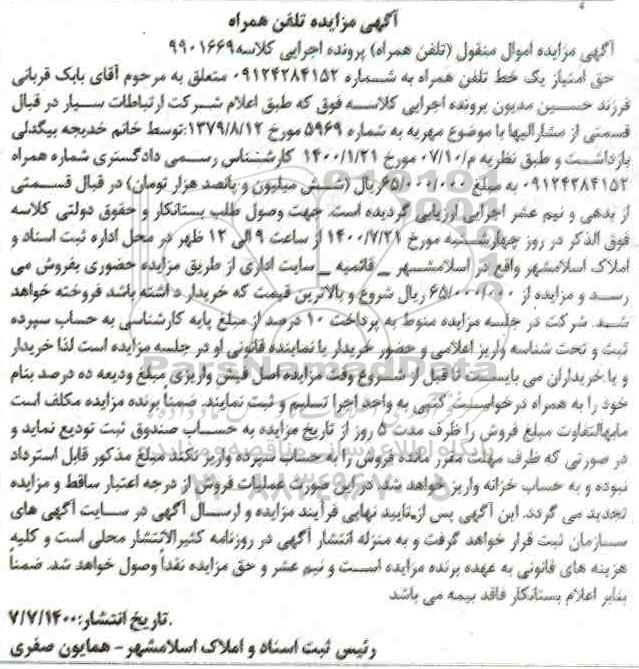 آگهی مزایده تلفن همراه
آگهی مزایده اموال منقول (تلفن همراه) پرونده اجرایی کلاسه۹۹۰۱۶۶۹
حق امتیاز یک خط تلفن همراه به شماره ۰۹۱۲۴۲۸۴۱۵۲ متعلق به مرحوم آقای بابک قربانی
فرزند حسین مدیون پرونده اجرایی کلاسه فوق که طبق اعلام شرکت ارتباطات سیار در قبال
قسمتی از مشارالیها با موضوع مهریه به شماره ۵۹۶۹ مورخ ۱۳۷۹/۸/۱۲:توسط خانم خدیجه بیگدلی
بازداشت و طبق نظریه م/۰۷/۱۰ مورخ ۱۴۰۰/۱/۲۱ کارشناس رسمی دادگستری شماره همراه
۰۹۱۲۴۲۸۴۱۵۲ به مبلغ ۶۵/۰۰۰/۰۰۰ریال (شش میلیون و پانصد هزار تومان) در قبال قسمتی
از بدهی و نیم عشر اجرایی ارزیابی گردیده است. جهت وصول طلب بستانکار و حقوق دولتی کلاسه
فوق الذکر در روز چهارشنبه مورخ ۱۴۰۰/۷/۲۱ از ساعت ۹ الی ۱۲ ظهر در محل اداره ثبت اسناد و
املاک اسلامشهر واقع در اسلامشهر _ قائمیه _ سایت اداری از طریق مزایده حضوری بفروش می
رسد و مزایده از ۶۵/۰۰۰/۰۰۰ ریال شروع و بالاترین قیمت که خریدار داشته باشد فروخته خواهد
شد. شرکت در جلسه مزایده منوط به پرداخت ۱۰ درصد از مبلغ پایه کارشناسی به حساب سپرده
ثبت و تحت شناسه واریز اعلامی و حضور خریدار یا نماینده قانونی او در جلسه مزایده است لذا خریدار
و یا خریداران می بایست تا قبل از شروع وقت مزایده اصل فیش واریزی مبلغ ودیعه ده درصد بنام
خود را به همراه درخواست کتبی به واحد اجرا تسلیم و ثبت نمایند. ضمنا برنده مزایده مکلف است
مابهالتفاوت مبلغ فروش را ظرف مدت ۵ روز از تاریخ مزایده به حساب صندوق ثبت تودیع نماید و
در صورتی که ظرف مهلت مقرر مانده فروش را به حساب سپرده واریز نکند مبلغ مذکور قابل استرداد
نبوده و به حساب خزانه واریز خواهد شد. در این صورت عملیات فروش از درجه اعتبار ساقط و مزایده
تجدید می گردد. این آگهی پس از تایید نهایی فرآیند مزایده و ارسال آگهی در سایت آگهی های
سازمان ثبت قرار خواهد گرفت و به منزله انتشار آگهی در روزنامه کثیرالانتشار محلی است و کلیه
هزینه های قانونی به عهده برنده مزایده است و نیم عشر و حق مزایده نقداً وصول خواهد شد. ضمناً
بنابر اعلام بستانکار فاقد بیمه می باشد
تاریخ انتشار:۷/۷/۱۴۰۰.
رئیس ثبت اسناد و املاک اسلامشهر- همایون صفری
ParsNamadData